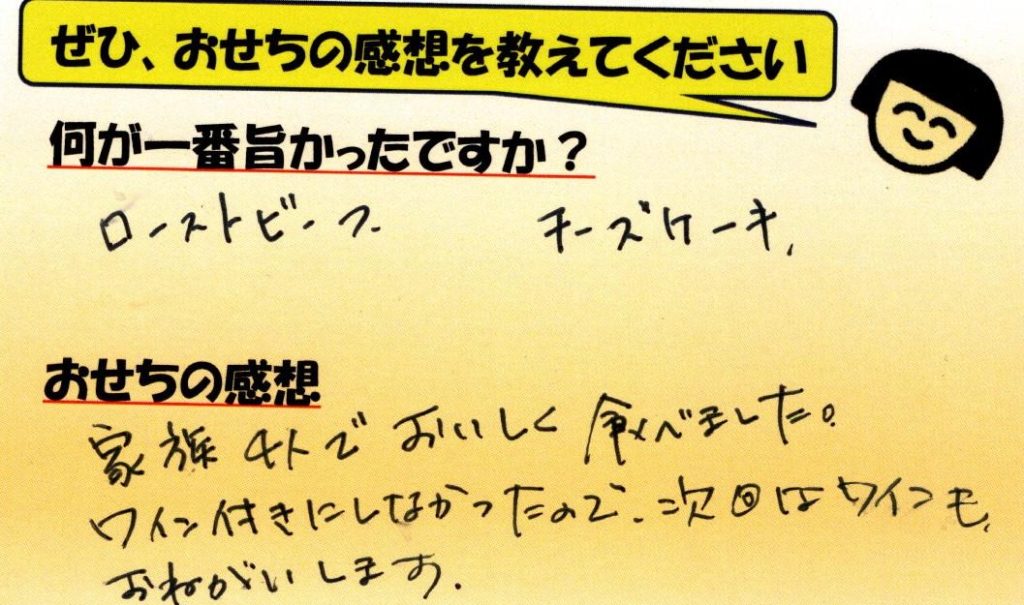 ぜひ、おせちの感想を教えてください
何が一番旨かったですか？
ローストビーフ. チーズケーキ.
おせちの感想
家族4人でおいしく食べました。
ワイン付きにしなかったので、次回はワインも、
おねがいします.